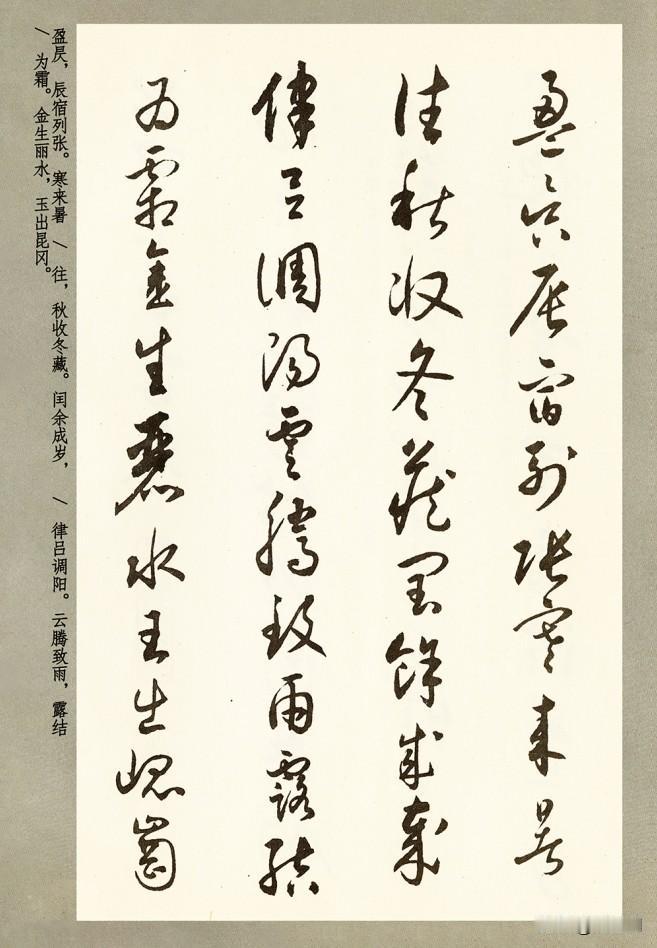 盈昃辰宿列张寒来暑
往秋收冬藏闰馀成岁
律吕调阳云腾致雨露结
为霜金生丽水玉出崐岗
盈昃，辰宿列张。寒来暑 \ 往，秋收冬藏。闰余成岁， \ 律吕调阳。云腾致雨，露结
\ 为霜。金生丽水，玉出昆冈。